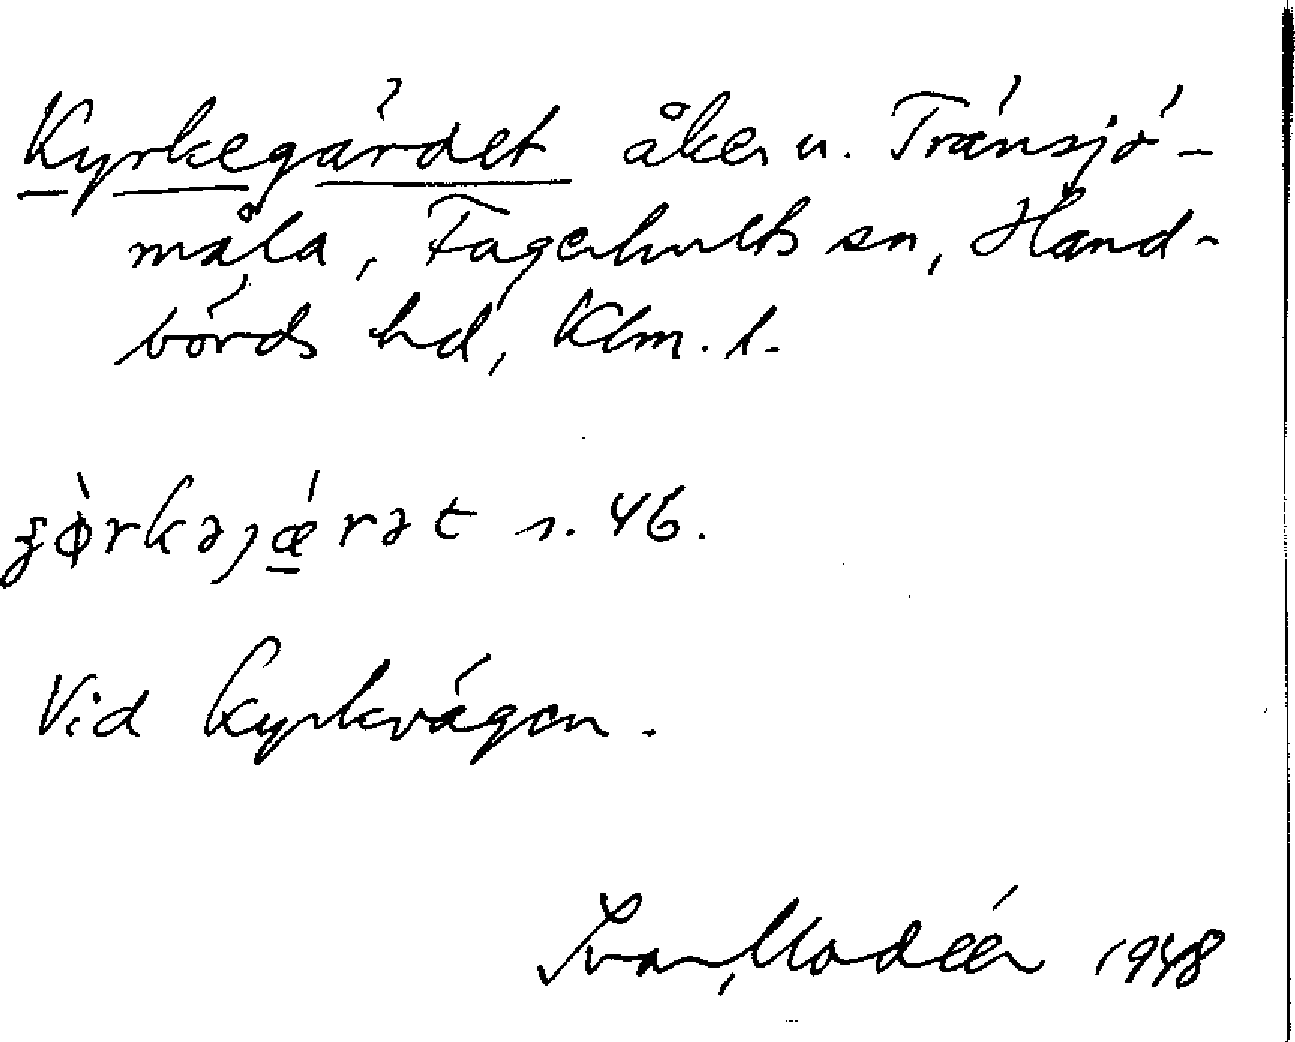 Kyrkegärdet åker u. Tränsjö-
måla, Fagerhults sn, Hand-
börds hd, Klm. l.
s. 46.
Vid kyrkvägen.
Ivar Modéer 1948